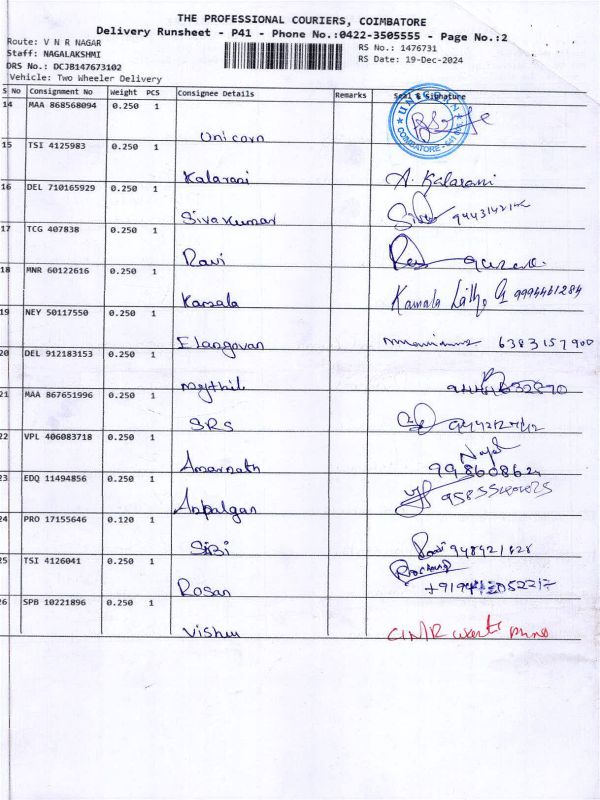 THE PROFESSIONAL COURIERS, COIMBATORE
Delivery Runsheet - P41 - Phone No.:0422-3505555 - Page No.:2
Route: V N R NAGAR
Staff: NAGALAKSHMI
DRS No.: DCJB147673102
Vehicle: Two Wheeler Delivery
RS No.: 1476731
RS Date: 19-Dec-2024
S No Consignment No Weight PCS Consignee Details Remarks Seal & Signature
14 MAA 868568094 0.250 1
Unicorn
COIMBATORE
15 TSI 4125983 0.250 1
Kalarani A. Kalarani
16 DEL 710165929 0.250 1
Sivakumar
17 TCG 407838 0.250 1
Ravi
18 MNR 60122616 0.250 1
Kamala 9994461284
19 NEY 50117550 0.250 1
Elangovan 6383157900
20 DEL 912183153 0.250 1
Mythili
21 MAA 867651996 0.250 1
SRS
22 VPL 406083718 0.250 1
Amarnath
23 EDQ 11494856 0.250 1
24 PRO 17155646 0.120 1
SiBi
25 TSI 4126041 0.250 1
Rosan
26 SPB 10221896 0.250 1
Vishnu